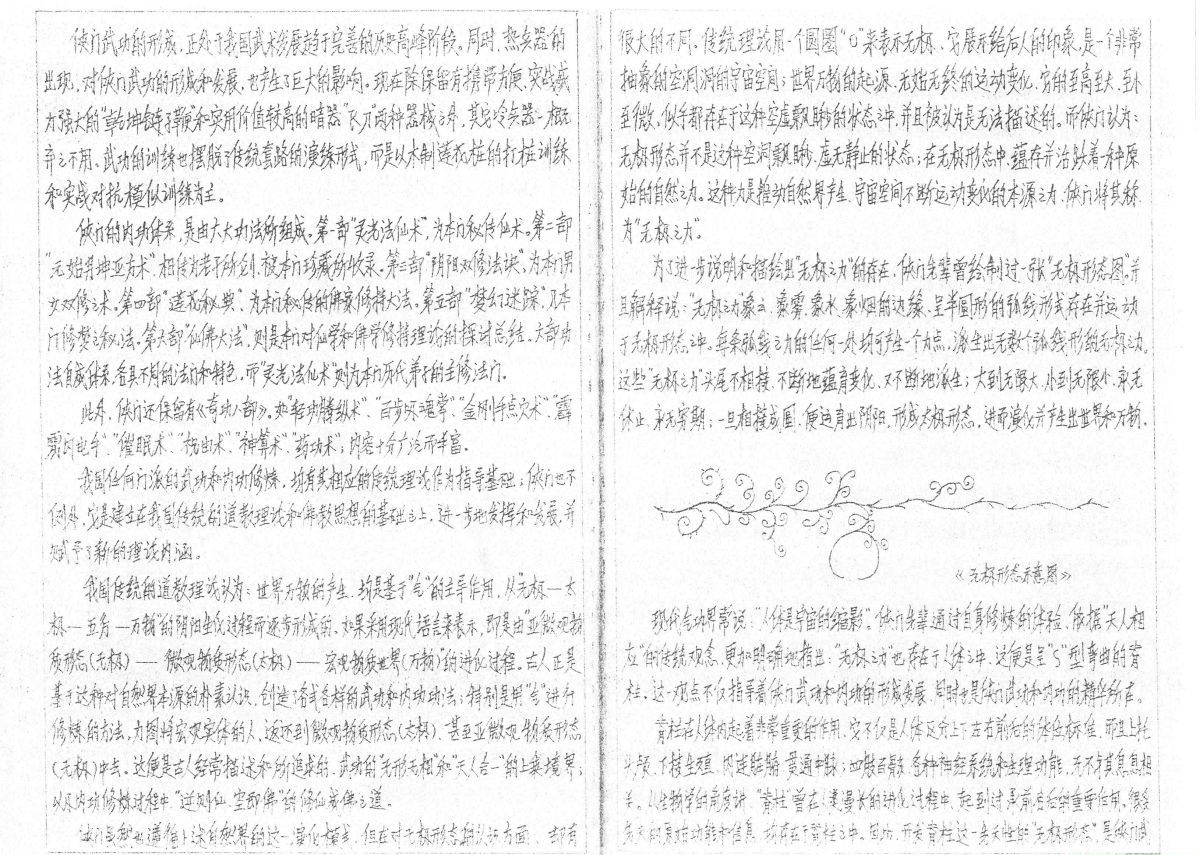 侠门武功的形成，正处于我国武术发展趋于完善的历史高峰阶段。同时，热兵器的
出现，对侠门武功的形成和发展，也产生了巨大的影响。现在除保留有携带方便、实战威
力强大的“乾坤链子鞭”和实用价值较高的暗器“飞刀”两种器械之外，其它冷兵器一概
弃之不用。武功的训练也摆脱了传统套路的演练形式，而是以木制莲花桩的打桩训练
和实战对抗模似训练为主。
侠门的内功体系，是由六大功法所组成。第一部“灵光法仙术”，为本门秘传仙术。第二部
“元始异坤亚方术”，相传为老子所创，被本门珍藏所收录。第三部“阴阳双修法诀”，为本门男
女双修之术。第四部“莲花秘典”，为本门秘传的佛家修持大法。第五部“梦幻迷踪”，乃本
门修梦之秘法。第六部“仙佛大法”，则是本门对仙学和佛学修持理论的探讨总结。六部功
法自成体系，各具不同的法门和特色，而“灵光法仙术”则为本门历代弟子的主修法门。
此外，侠门还保留有《奇功八部》。如“轻功腾纵术”、“百步沉魂掌”、“金刚手点穴术”、“霹
雳闪电手”、“催眠术”、“梳由术”、“神算术”、“药功术”；内容十分广泛而丰富。
我国任何门派的武功和内功修炼，均有其相应的传统理论作为指导基础；侠门也不
例外，它是建立在我国传统的道教理论和佛教思想的基础之上，进一步地发挥和发展，并
赋予了新的理论内涵。
我国传统的道教理论认为：世界万物的产生，均是基于“气”的主导作用，从“无极—太
极—五行—万物”的阴阳生化过程而逐步形成的。如果采用现代语言来表示，即是由“亚微观物
质形态（无极）——微观物质形态（太极）——宏观物质世界（万物）”的进化过程。古人正是
基于这种对自然界本源的朴素认识，创造了各式各样的武功和内功功法；特别是用“气”进行
修炼的方法，力图将宏观实体的人，返还到微观物质形态（太极），甚至亚微观物质形态
（无极）中去。这便是古人经常描述和所追求的，武功的“无形无相”和“天人合一”的上乘境界；
以及内功修炼过程中“逆则仙、空即佛”的修仙成佛之道。
侠门虽然也遵循上述自然界的这一演化模式，但在对无极形态的认识方面，却有
很大的不同。传统理论用一个圆圈“〇”来表示无极，它展示给后人的印象，是一个非常
抽象的空洞洞的宇宙空间；世界万物的起源、无始无终的运动变化，穷的至高至大、至小
至微，似乎都存在于这种空虚飘眇的状态之中，并且被认为是无法描述的。而侠门认为：
无极形态并不是这种空洞飘眇、虚无静止的状态；在无极形态中，蕴存并活跃着一种原
始的自然之力。这种力是推动自然界产生、宇宙空间不断运动变化的本源之力，侠门将其称
为“无极之力”。
为了进一步说明和描绘出“无极之力”的存在，侠门先辈曾绘制过一张“无极形态图”。并
且解释说：“无极之力”象云、象雾、象水、象烟的边缘，呈半圆形的弧线形式存在并运动
于无极形态之中。每条弧线之力的任何一处均可产生一个力点，派生出无数个弧线形的无极之力。
这些“无极之力”头尾不相接，不断地蕴育变化，又不断地派生；大到无限大，小到无限小，永无
休止，永无穷期；一旦相接成圆，便运育出阴阳，形成太极形态，进而演化并产生出世界和万物。
《无极形态示意图》
现代气功界常说：“人体是宇宙的缩影”。侠门先辈通过自身修炼的体验，依据“天人相
应”的传统观念，更加明确地指出：“无极之力”也存在于人体之中，这便是呈“S”型弯曲的脊
柱，这一观点不仅指导着侠门武功和内功的形成发展，同时也是侠门武功和内功的精华所在。
脊柱在人体内起着非常重要的作用，它不仅是人体区分上下左右前后的体位标准，而且上托
头颅，下接生殖，内连脏腑，贯通中脉；四肢百骸，各种神经系统和生理功能，无不与其息息相
关。从生物学的角度讲，“脊柱”曾在人类漫长的进化过程中，起到过承前启后的重要作用。很多
的原始功能和信息，均存在于脊柱之中。因此，开发脊柱这一类生性的“无极形态”，是侠门武